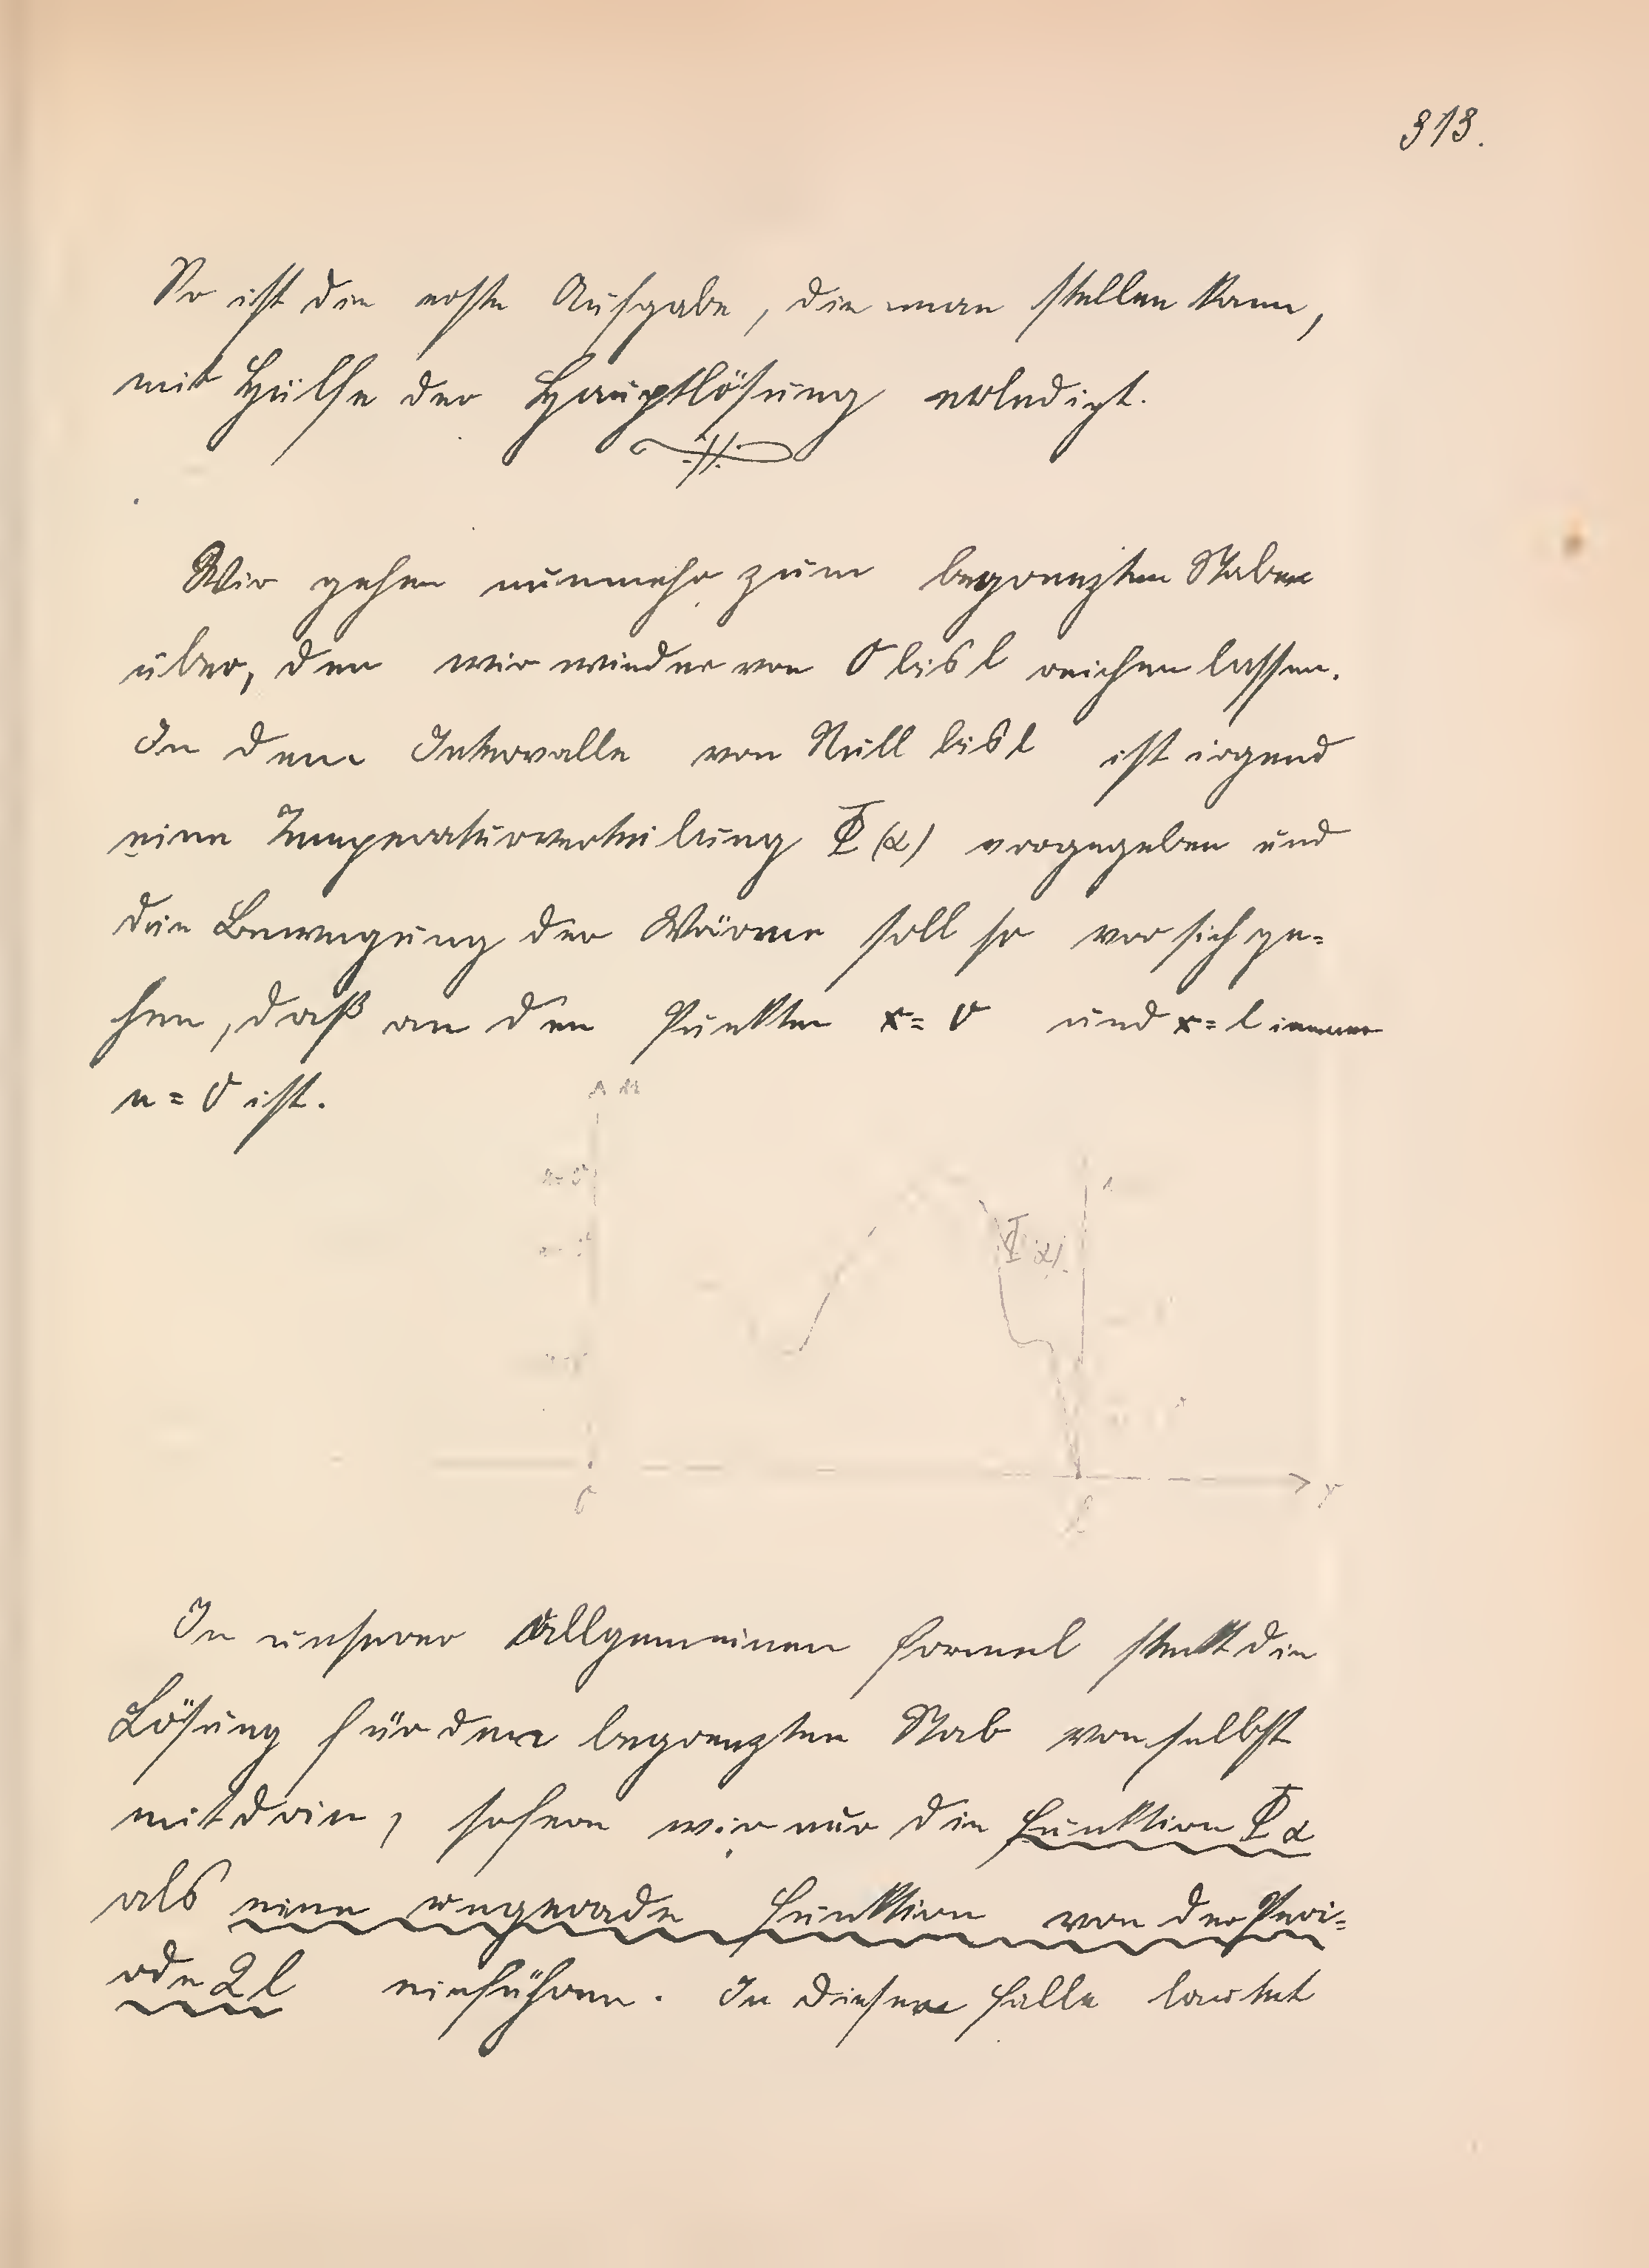 313.
So ist die erste Aufgabe, die man stellen kann,
mit Hülfe der Hauptlösung erledigt.
Wir gehen nunmehr zum begrenzten Stabe
über, den wir wieder von 0 bis l reichen lassen.
In dem Intervalle von Null bis l ist irgend
eine Temperaturverteilung Φ(α) vorgegeben und
die Bewegung der Wärme soll so vor sich ge=
hen, daß an den Punkten x = 0 und x = l immer
u = 0 ist.
u
Φ(α).
0
l
x
In unserer allgemeinen Formel steckt die
Lösung für den begrenzten Stab von selbst
mit drin, sofern wir nur die Funktion Φα
als eine ungerade Funktion von der Peri=
ode 2l einführen. In diesem Falle lautet